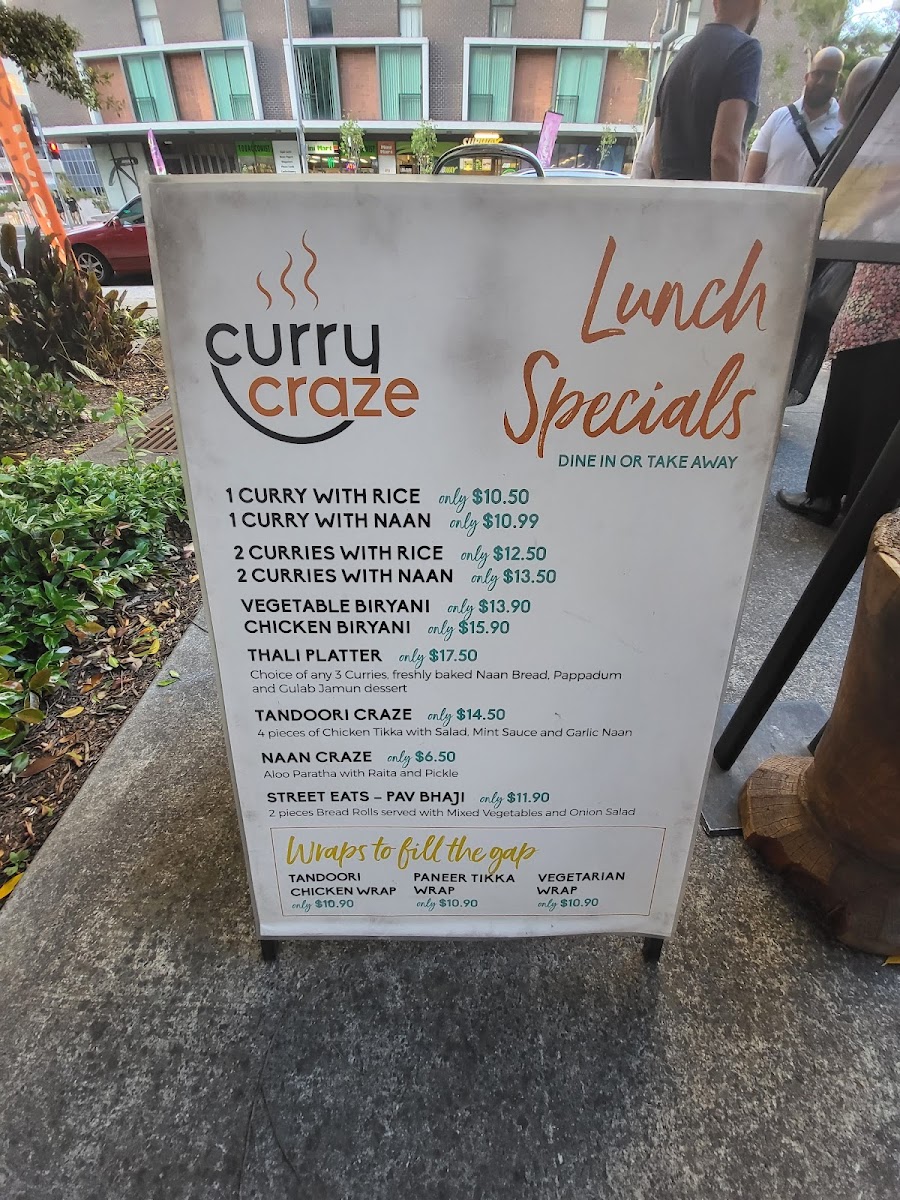 curry
craze
Lunch
Specials
DINE IN OR TAKE AWAY
1 CURRY WITH RICE only $10.50
1 CURRY WITH NAAN only $10.99
2 CURRIES WITH RICE only $12.50
2 CURRIES WITH NAAN only $13.50
VEGETABLE BIRYANI only $13.90
CHICKEN BIRYANI only $15.90
THALI PLATTER only $17.50
Choice of any 3 Curries, freshly baked Naan Bread, Pappadum
and Gulab Jamun dessert
TANDOORI CRAZE only $14.50
4 pieces of Chicken Tikka with Salad, Mint Sauce and Garlic Naan
NAAN CRAZE only $6.50
Aloo Paratha with Raita and Pickle
STREET EATS – PAV BHAJI only $11.90
2 pieces Bread Rolls served with Mixed Vegetables and Onion Salad
Wraps to fill the gap
TANDOORI
CHICKEN WRAP
only $10.90
PANEER TIKKA
WRAP
only $10.90
VEGETARIAN
WRAP
only $10.90
SUBWAY